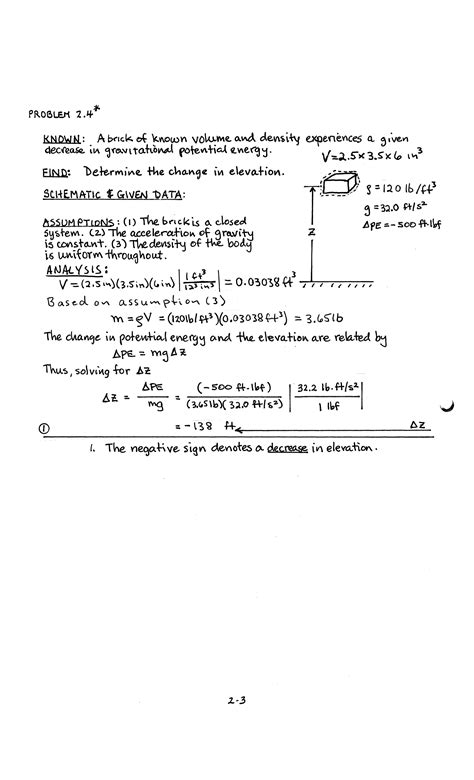 PROBLEM 2.4*
KNOWN: A brick of known volume and density experiences a given
decrease in gravitational potential energy.
V=2.5×3.5×6 in³
FIND: Determine the change in elevation.
SCHEMATIC & GIVEN DATA:
ρ=120 lb/ft³
g=32.0 ft/s²
ΔPE=-500 ft·lbf
z
ASSUMPTIONS: (1) The brick is a closed
system. (2) The acceleration of gravity
is constant. (3) The density of the body
is uniform throughout.
ANALYSIS:
V=(2.5in)(3.5in)(6in) | 1 ft³ / 12³ in³ | = 0.03038 ft³
Based on assumption (3)
m = ρV = (120lb/ft³)(0.03038ft³) = 3.65lb
The change in potential energy and the elevation are related by
ΔPE = mgΔz
Thus, solving for Δz
Δz = ΔPE / mg = (-500 ft·lbf) / (3.65lb)(32.0 ft/s²) | 32.2 lb·ft/s² / 1 lbf |
① = -138 ft Δz
1. The negative sign denotes a decrease in elevation.
2-3